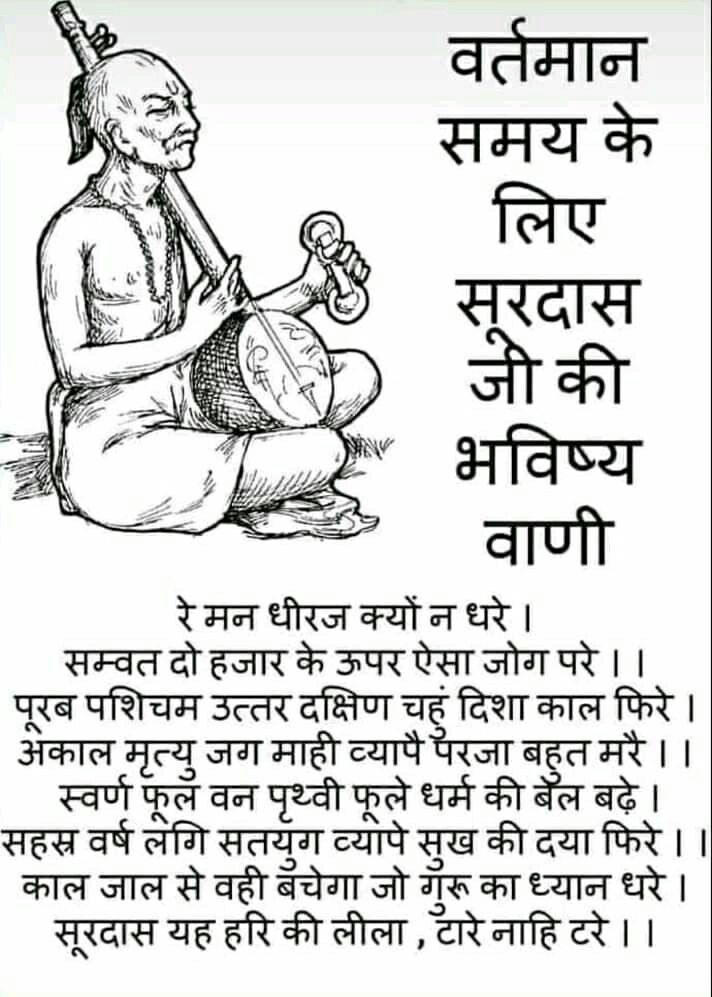 वर्तमान
समय के
लिए
सूरदास
जी की
भविष्य
वाणी
रे मन धीरज क्यों न धरे ।
सम्वत दो हजार के ऊपर ऐसा जोग परे । ।
पूरब पशिचम उत्तर दक्षिण चहुं दिशा काल फिरे ।
अकाल मृत्यु जग माही व्यापै परजा बहुत मरै । ।
स्वर्ण फूल वन पृथ्वी फूले धर्म की बेल बढ़े ।
सहस्र वर्ष लगि सतयुग व्यापे सुख की दया फिरे । ।
काल जाल से वही बचेगा जो गुरू का ध्यान धरे ।
सूरदास यह हरि की लीला , टारे नाहि टरे । ।